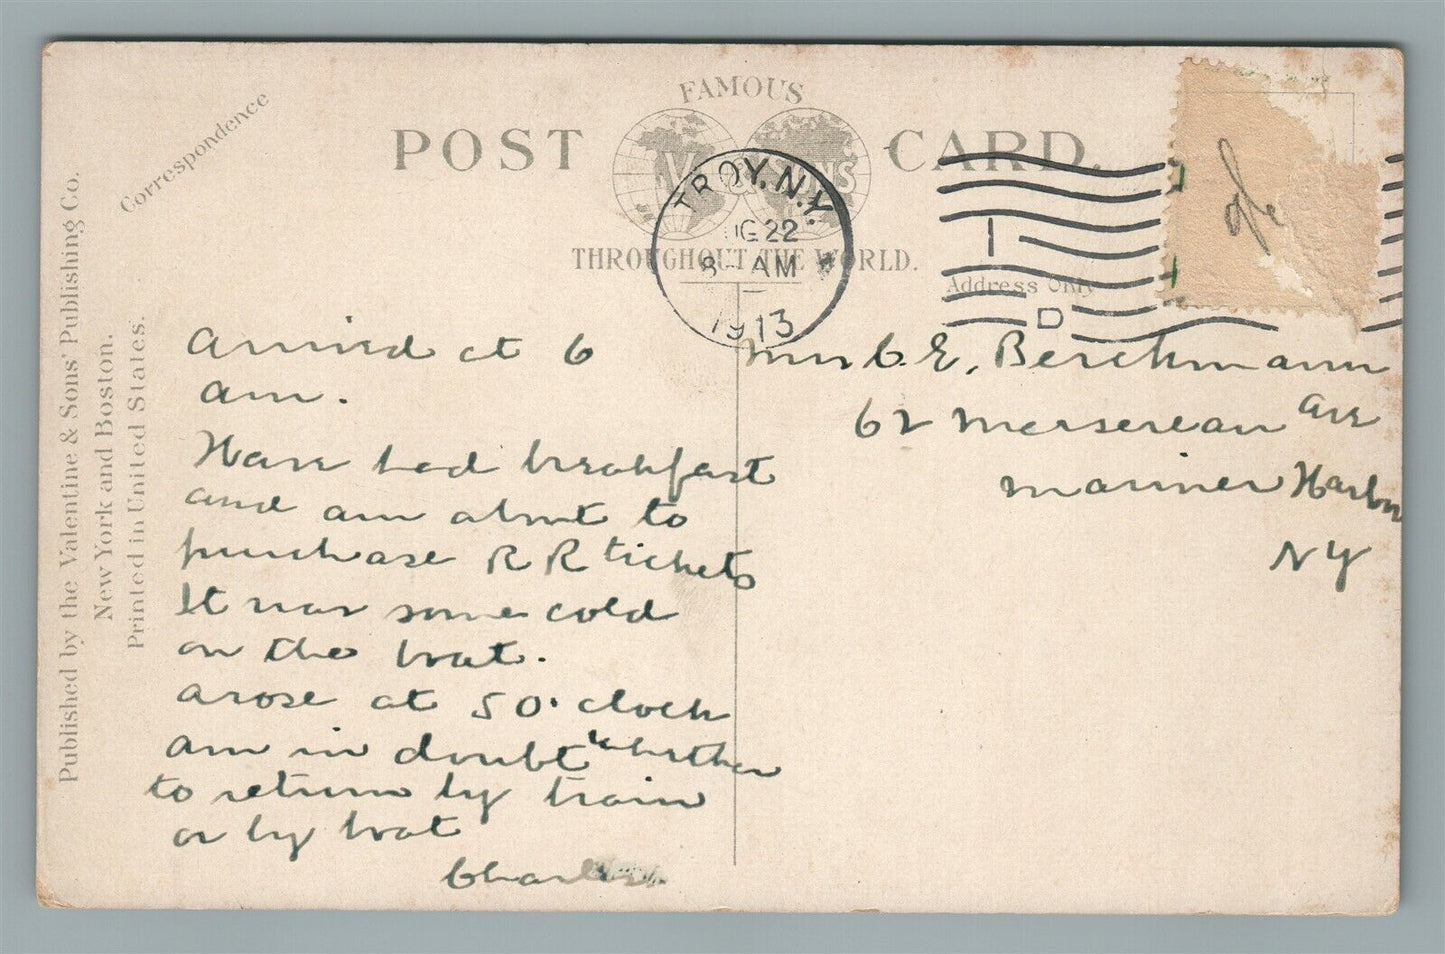 Published by the Valentine & Sons' Publishing Co.
New York and Boston.
Printed in United States.
Correspondence
FAMOUS
POST CARD.
THROUGHOUT THE WORLD.
TROY, N.Y.
22
8-AM
1913
D
Address Only
Arrived at 6
am.
Have had breakfast
and am about to
purchase R R tickets
It was some cold
on the boat.
Arose at 5 O'clock
am in doubt whether
to return by train
or by boat
Charles
Mrs C. E. Berchmann
62 Mersereau Ave
Mariner Harbor
NY